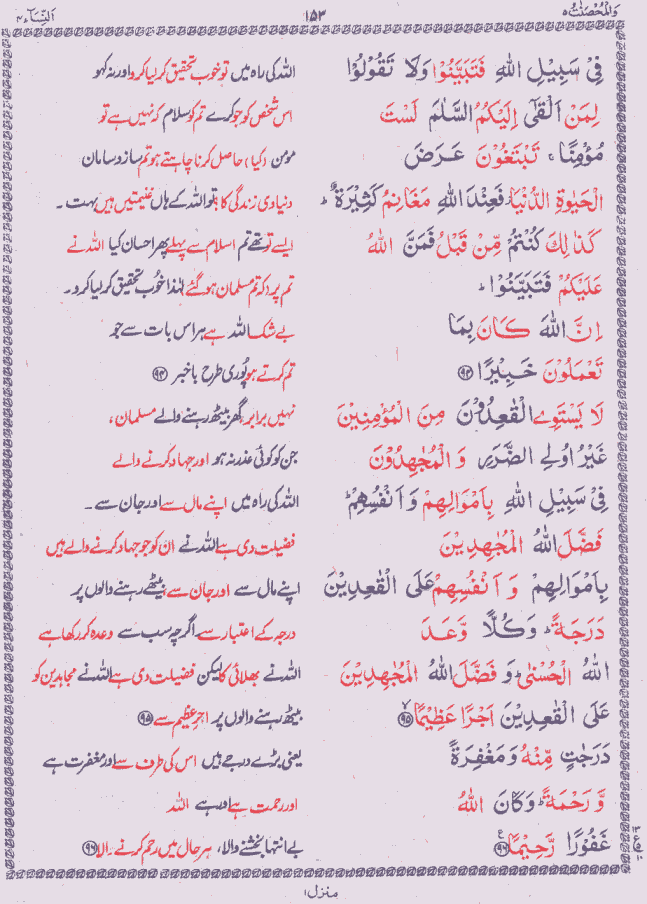 وَالْمُحْصَنٰتُ ۵
۱۵۳
اَلنِّسَآء ۴
فِیْ سَبِیْلِ اللّٰهِ فَتَبَیَّنُوْا وَلَا تَقُوْلُوْا
اللہ کی راہ میں تو خوب تحقیق کر لیا کرو اور نہ کہو
لِمَنْ اَلْقٰۤی اِلَیْكُمُ السَّلٰمَ لَسْتَ
اس شخص کو جو کرے تم کو سلام کہ نہیں ہے تو
مُؤْمِنًا ۚ تَبْتَغُوْنَ عَرَضَ
مومن (کیا) حاصل کرنا چاہتے ہو تم ساز و سامان
الْحَیٰوةِ الدُّنْیَا ؗ فَعِنْدَ اللّٰهِ مَغَانِمُ كَثِیْرَةٌ ؕ
دنیاوی زندگی کا؟ تو اللہ کے ہاں غنیمتیں ہیں بہت ۔
كَذٰلِكَ كُنْتُمْ مِّنْ قَبْلُ فَمَنَّ اللّٰهُ
ایسے تو تھے تم اسلام سے پہلے پھر احسان کیا اللہ نے
عَلَیْكُمْ فَتَبَیَّنُوْا ؕ
تم پر (کہ تم مسلمان ہو گئے) لہٰذا خوب تحقیق کر لیا کرو۔
اِنَّ اللّٰهَ كَانَ بِمَا
بے شک اللہ ہے ہر اس بات سے جو
تَعْمَلُوْنَ خَبِیْرًا ﴿۹۴﴾
تم کرتے ہو پوری طرح باخبر ﴿۹۴﴾
لَا یَسْتَوِی الْقٰعِدُوْنَ مِنَ الْمُؤْمِنِیْنَ
نہیں برابر گھر بیٹھ رہنے والے مسلمان،
غَیْرُ اُولِی الضَّرَرِ وَ الْمُجٰهِدُوْنَ
جن کو کوئی عذر نہ ہو اور جہاد کرنے والے
فِیْ سَبِیْلِ اللّٰهِ بِاَمْوَالِهِمْ وَ اَنْفُسِهِمْ ؕ
اللہ کی راہ میں اپنے مال سے اور جان سے ۔
فَضَّلَ اللّٰهُ الْمُجٰهِدِیْنَ
فضیلت دی ہے اللہ نے ان کو جو جہاد کرنے والے ہیں
بِاَمْوَالِهِمْ وَ اَنْفُسِهِمْ عَلَی الْقٰعِدِیْنَ
اپنے مال سے اور جان سے، بیٹھے رہنے والوں پر
دَرَجَةً ؕ وَ كُلًّا وَّعَدَ
درجہ کے اعتبار سے اگرچہ سب سے وعدہ کر رکھا ہے
اللّٰهُ الْحُسْنٰی ؕ وَ فَضَّلَ اللّٰهُ الْمُجٰهِدِیْنَ
اللہ نے بھلائی کا لیکن فضیلت دی ہے اللہ نے مجاہدین کو
عَلَی الْقٰعِدِیْنَ اَجْرًا عَظِیْمًا ﴿۹۵﴾
بیٹھ رہنے والوں پر اجرِ عظیم سے ﴿۹۵﴾
دَرَجٰتٍ مِّنْهُ وَ مَغْفِرَةً
یعنی بڑے درجے ہیں اس کی طرف سے اور مغفرت ہے
وَّ رَحْمَةً ؕ وَ كَانَ اللّٰهُ
اور رحمت ہے اور ہے اللہ
غَفُوْرًا رَّحِیْمًا ﴿۹۶﴾
بے انتہا بخشنے والا، ہر حال میں رحم کرنے والا ﴿۹۶﴾
منزل ۱